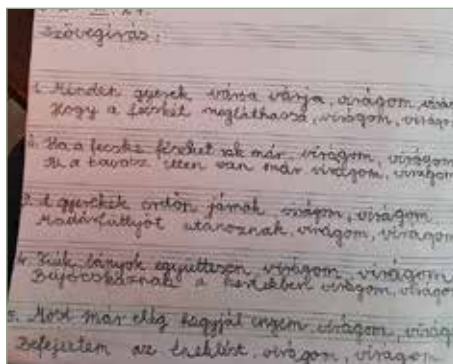 szövegírás:
1. Minden gyerek várva várja, virágom, virág
Hogy a fecskét megláthassa, virágom, virágom
2. Ha a fecske fészket rak már, virágom, virágom
Az a tavasz itten van már virágom, virágom
3. A gyerekek erdőn járnak, virágom, virágom
Madárfüttyöt utánoznak, virágom, virágom
4. Fiúk lányok együttesen, virágom, virágom
Bújócskáznak a kertekben virágom, virágom
5. Most már elég hagyjál engem, virágom, virág
Befejeztem az éneklést, virágom, virágom